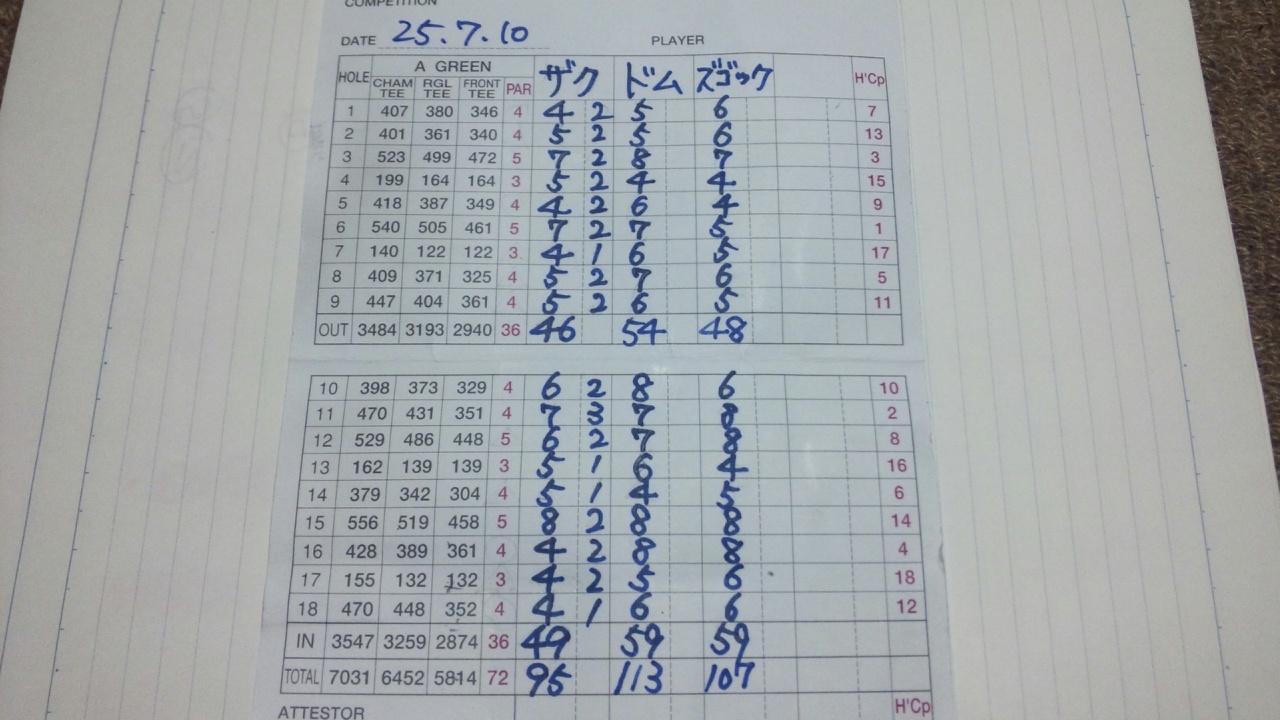 COMPETITION
DATE 25.7.10 PLAYER
HOLE A GREEN ザク ドム ズゴック H'Cp
CHAM TEE RGL TEE FRONT TEE PAR
1 407 380 346 4 4 2 5 6 7
2 401 361 340 4 5 2 5 6 13
3 523 499 472 5 7 2 8 7 3
4 199 164 164 3 5 2 4 4 15
5 418 387 349 4 4 2 6 4 9
6 540 505 461 5 7 2 7 5 1
7 140 122 122 3 4 1 6 5 17
8 409 371 325 4 5 2 7 6 5
9 447 404 361 4 5 2 6 5 11
OUT 3484 3193 2940 36 46 54 48
10 398 373 329 4 6 2 8 6 10
11 470 431 351 4 7 3 7 8 2
12 529 486 448 5 6 2 7 8 8
13 162 139 139 3 5 1 6 4 16
14 379 342 304 4 5 1 4 5 6
15 556 519 458 5 8 2 8 8 14
16 428 389 361 4 4 2 8 8 4
17 155 132 132 3 4 2 5 6 18
18 470 448 352 4 4 1 6 6 12
IN 3547 3259 2874 36 49 59 59
TOTAL 7031 6452 5814 72 95 113 107
ATTESTOR H'Cp